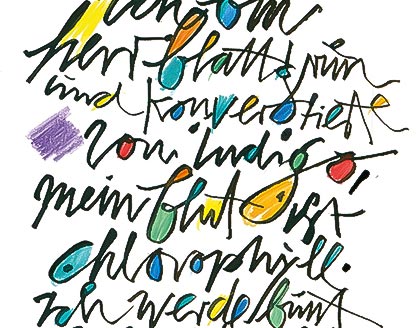 ich
herr blattgrün
und konvertierte
von indigo
mein blut ist
chlorophyll.
ich werde bunt